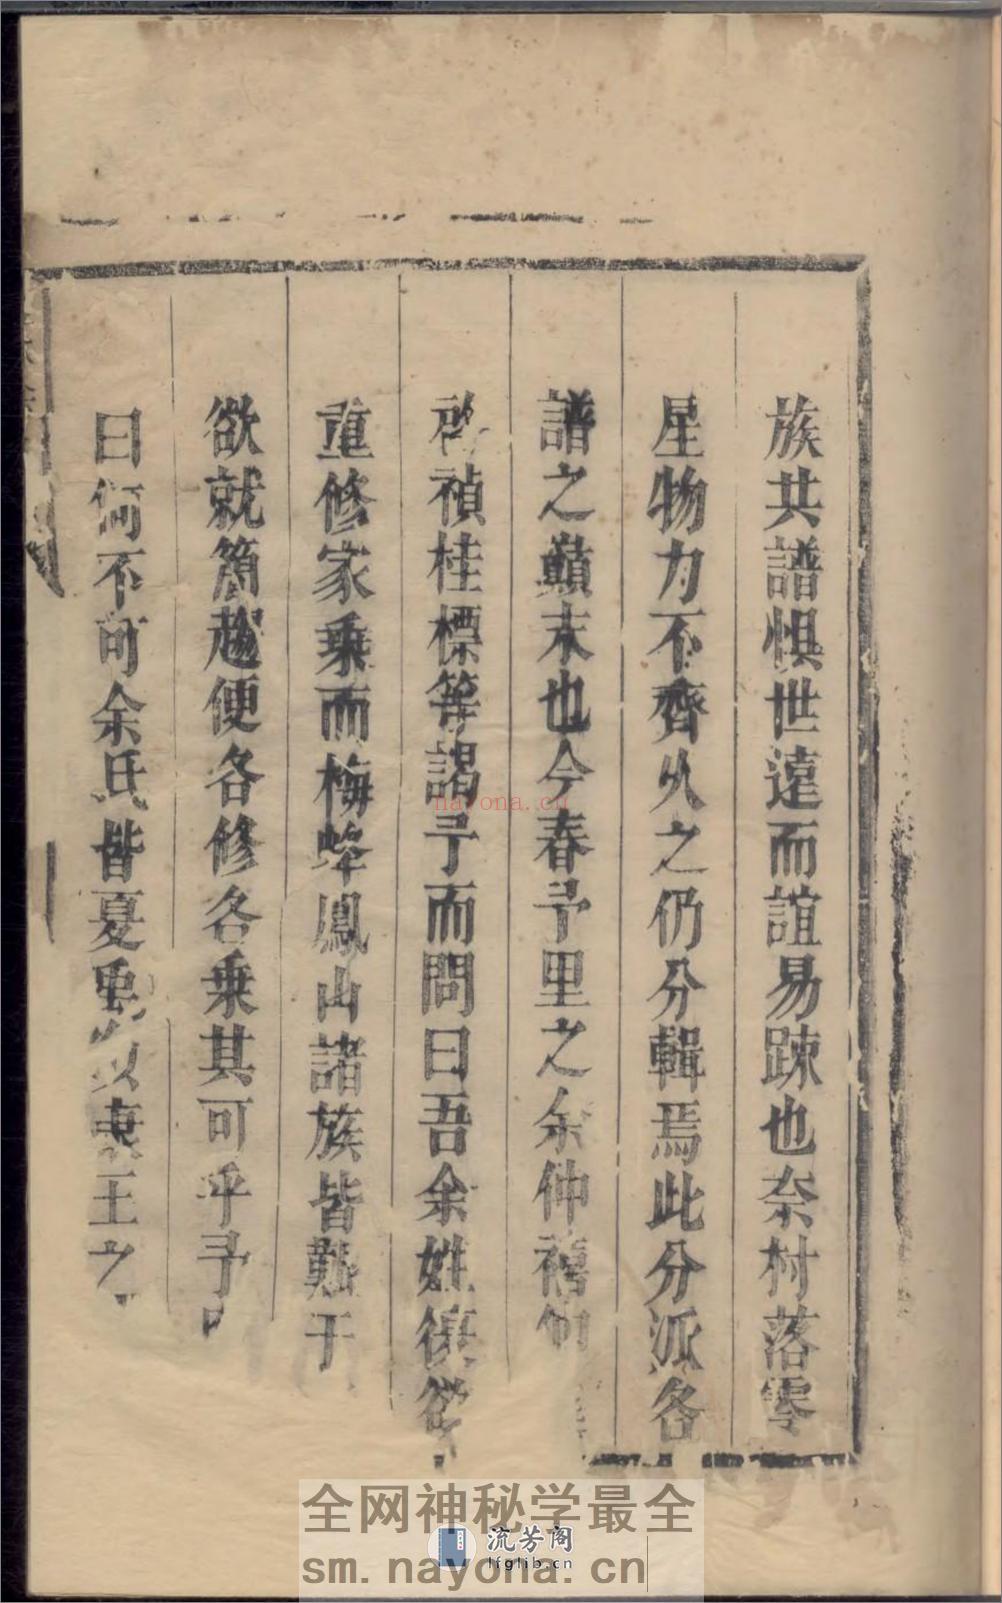 族共譜惧世遠而誼易踈也奈村落零
星物力不齊久之仍分輯焉此分派各
譜之巔末也今春予里之余仲禧
啓禎桂標等謁予而問曰吾余姓復欲
重修家乗而梅峰鳳山諸族皆艱于
欲就簡趨便各修各乗其可乎予
曰何不可余氏皆夏禹王之
nayona.cn
全网神秘学最全
流芳阁
lfglib.cn
sm.nayona.cn